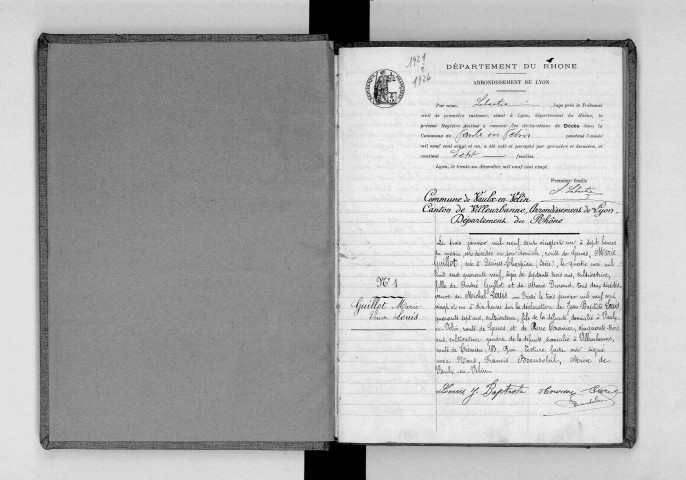 1921
à
1926
DÉPARTEMENT DU RHÔNE
ARRONDISSEMENT DE LYON
Par nous, Juge près le Tribunal
civil de première instance, séant à Lyon, département du Rhône, le
présent Registre destiné à recevoir les déclarations de Décès dans la
Commune de Vaulx en Velin pendant l'année
mil neuf cent vingt et un, a été coté et paraphé par première et dernière, et
contient sept feuilles.
Lyon, le trente-un décembre mil neuf cent vingt.
Première feuille
Commune de Vaulx-en-Velin
Canton de Villeurbanne, Arrondissement de Lyon,
Département du Rhône
N° 1
Guillot Marie
Veuve Louis
Le trois janvier mil neuf cent vingt un, à sept heures
du matin, est décédée en son domicile, route de Genas, Marie
Guillot, née à (Isère), le quatre mai mil
huit cent quarante neuf, âgée de septante trois ans, cultivatrice,
fille de André Guillot et de Marie Durand, tous deux décédés
veuve de Michel Louis. Dressé le trois janvier mil neuf cent
vingt et un à dix heures sur la déclaration de Jean Baptiste Louis,
quarante sept ans, cultivateur, fils de la défunte, domicilié à Vaulx-
en-Velin, route de Genas et de Pierre cinquante-trois
ans, cultivateur, gendre de la défunte, domicilié à Villeurbanne,
route de Crémieu, qui lecture faite ont signé
avec Nous, Francis Maire de
Vaulx-en-Velin.
Louis J. Baptiste